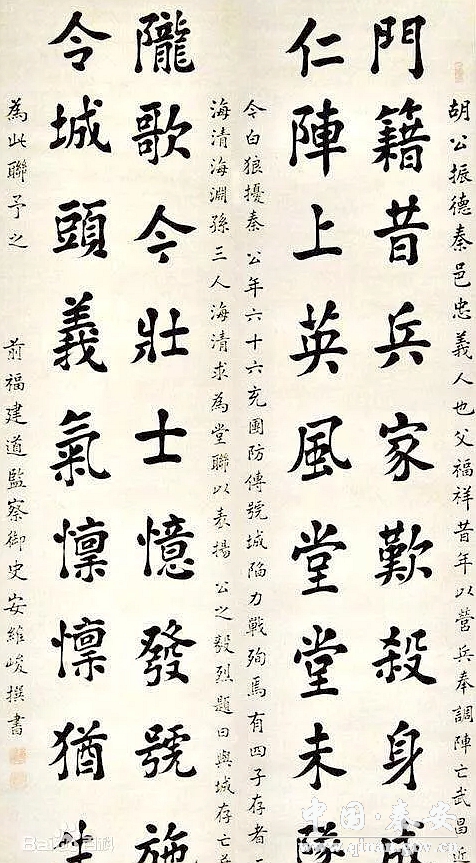 胡公振德秦邑忠義人也父福祥昔年以營兵奉調陣亡武昌
門籍昔兵家歎殺身成
仁陣上英風堂堂未
令白狼擾秦 公年六十六充團防傳號城陷力戰殉焉有四子存者
海清海淵孫三人海清求為堂聯以表揚 公之毅烈題曰與城存亡
隴歌今壯士憶發號施
令城頭義氣懍懍猶
為此聯予之 前福建道監察御史安維峻撰書
Baidu百科
中国·秦安